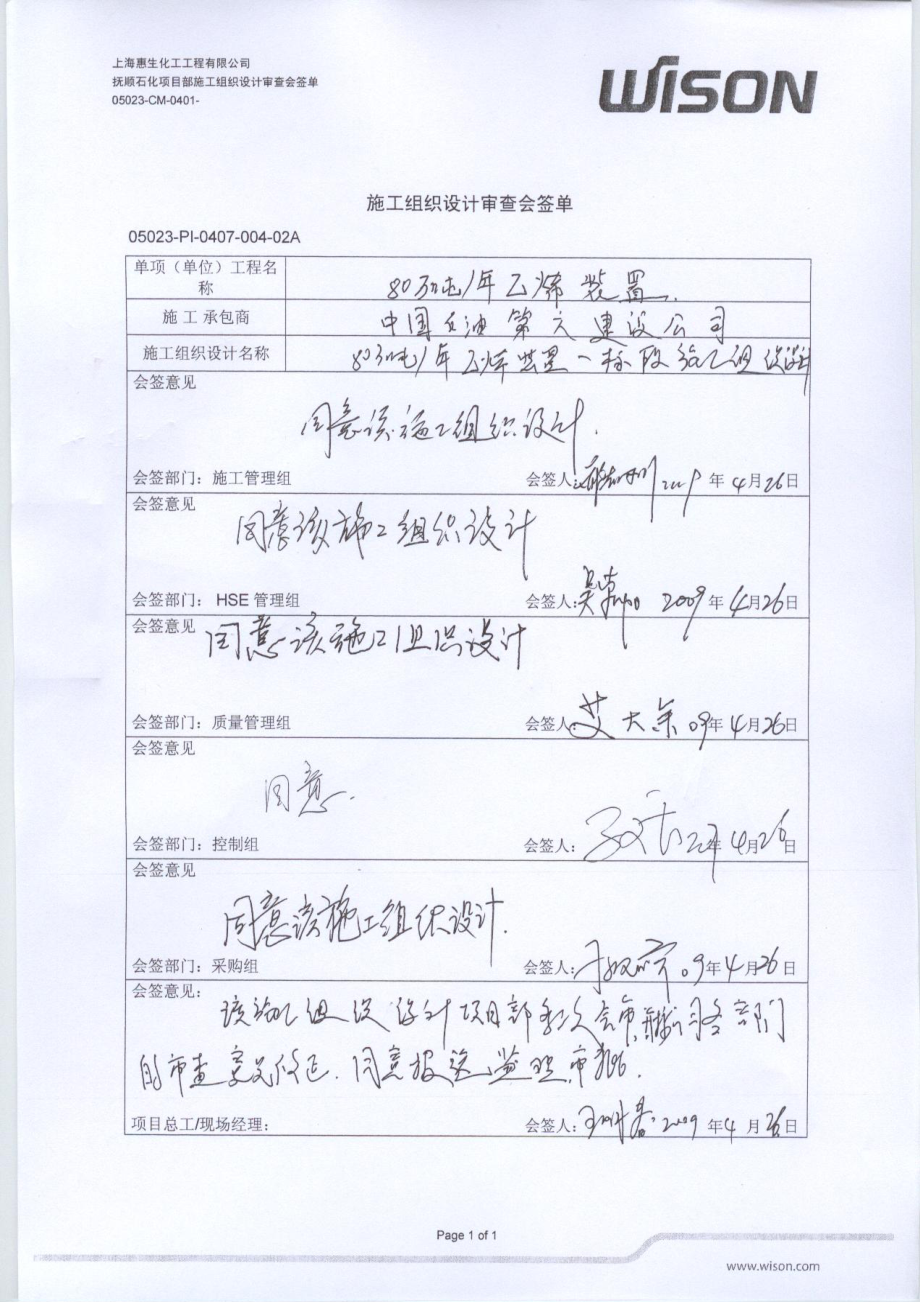 上海惠生化工工程有限公司
抚顺石化项目部施工组织设计审查会签单
05023-CM-0401-
WISON
施工组织设计审查会签单
05023-PI-0407-004-02A
单项（单位）工程名称 80万吨/年乙烯装置
施工承包商 中国石油第六建设公司
施工组织设计名称 80万吨/年乙烯装置一标段施工组织设计
会签意见
同意该施工组织设计.
会签部门：施工管理组 会签人： 2009年4月26日
会签意见
同意该施工组织设计
会签部门： HSE管理组 会签人： 2009年4月26日
会签意见
同意该施工组织设计
会签部门：质量管理组 会签人： 09年4月26日
会签意见
同意.
会签部门：控制组 会签人： 年4月26日
会签意见
同意该施工组织设计.
会签部门：采购组 会签人： 09年4月26日
会签意见：
该施工组织设计项目部 各部门
的审查意见修正.同意报送监理审批.
项目总工/现场经理： 会签人： 2009年4月26日
Page 1 of 1
www.wison.com